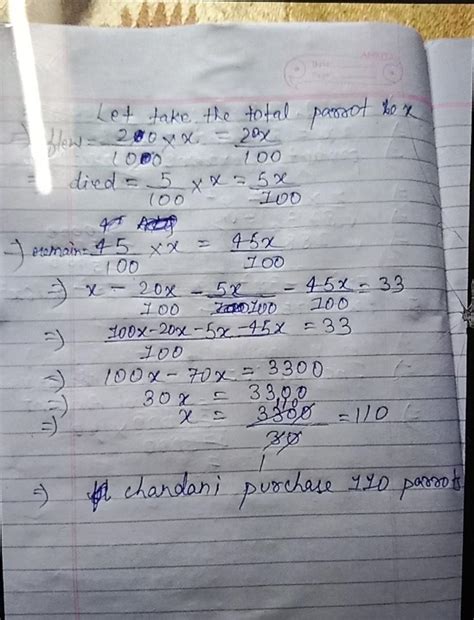 Let take the total parrot to x
⇒ flew = 200/1000 × x = 20x/100
= died = 5/100 × x = 5x/100
⇒ remain = 45/100 × x = 45x/100
⇒ x - 20x/100 - 5x/100 - 45x/100 = 33
⇒ 100x-20x-5x-45x/100 = 33
⇒ 100x - 70x = 3300
⇒ 30x = 3300
⇒ x = 3300/30 = 110
⇒ chandani purchase 110 parrots